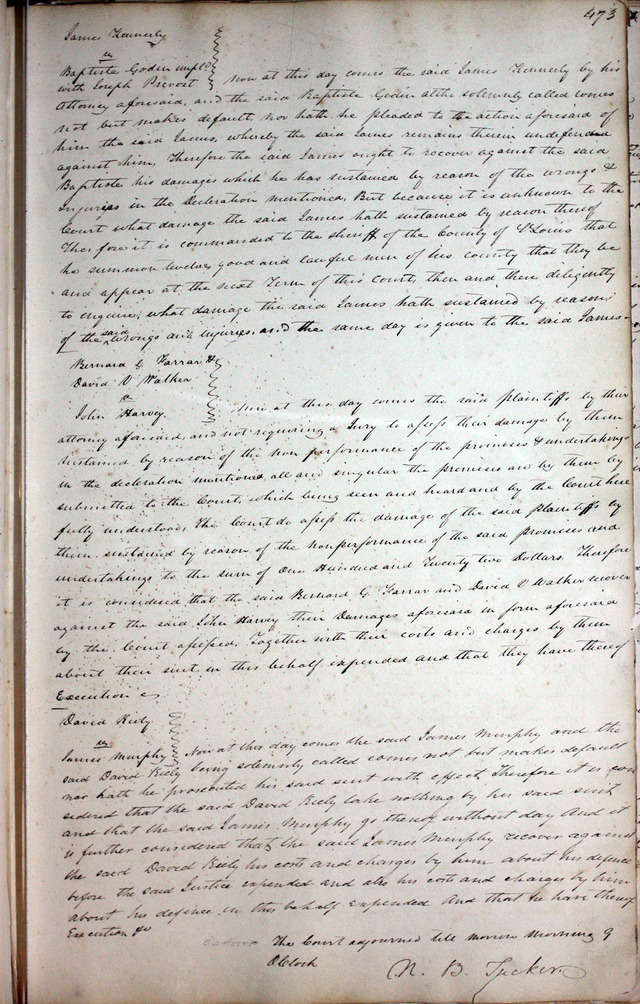 473
James Kennerly
vs
Baptiste Godin impld
with Joseph Prevost Now at this day comes the said James Kennerly by his
Attorney aforesaid, and the said Baptiste Godin altho solemnly called comes
not but makes default, nor hath he pleaded to the action aforesaid of
him the said James, whereby the said James remains therein undefended
against him, Therefore the said James ought to recover against the said
Baptiste his damages which he has sustained by reason of the wrongs &
injuries in the Declaration mentioned, But because it is unknown to the
Court what damage the said James hath sustained by reason thereof
Therefore it is commanded to the sheriff of the County of St Louis that
he summon twelve good and lawful men of his county that they be
and appear at the next Term of this court, then and there diligently
to enquire, what damage the said James hath sustained by reason
of the said wrongs and injuries, and the same day is given to the said James
Bernard G Farrar &
David V Walker
vs
John Harvey. Now at this day comes the said plaintiffs by their
attorney aforesaid, and not requiring a Jury to assess their damages by them
sustained by reason of the non performance of the promises & undertakings
in the declaration mentioned all and singular the premises are by them by
submitted to the Court, which being seen and heard and by the Court here
fully understood, the Court do assess the damage of the said plaintiffs by
them sustained by reason of the nonperformance of the said promises and
undertakings to the sum of One Hundred and Twenty two Dollars. Therefore
it is considered that the said Bernard G Farrar and David V Walker recover
against the said John Harvey their Damages aforesaid in form aforesaid
by the Court assessed, Together with their costs and charges by them
about their suit in this behalf expended and that they have thereof
Execution &
David Kiely
vs
James Murphy Now at this day comes the said James Murphy and the
said David Kiely being solemnly called comes not but makes default
nor hath he prosecuted his said suit with effect, Therefore it is con
sidered that the said David Kiely take nothing by his said suit
and that the said James Murphy go thereof without day And it
is further considered that the said James Murphy recover against
the said David Kiely his costs and charges by him about his defence
before the said Justice expended and also his costs and charges by him
about his defence in this behalf expended And that he have thereof
Execution &c
The Court adjourned till morrow morning 9
OClock
N. B. Tucker